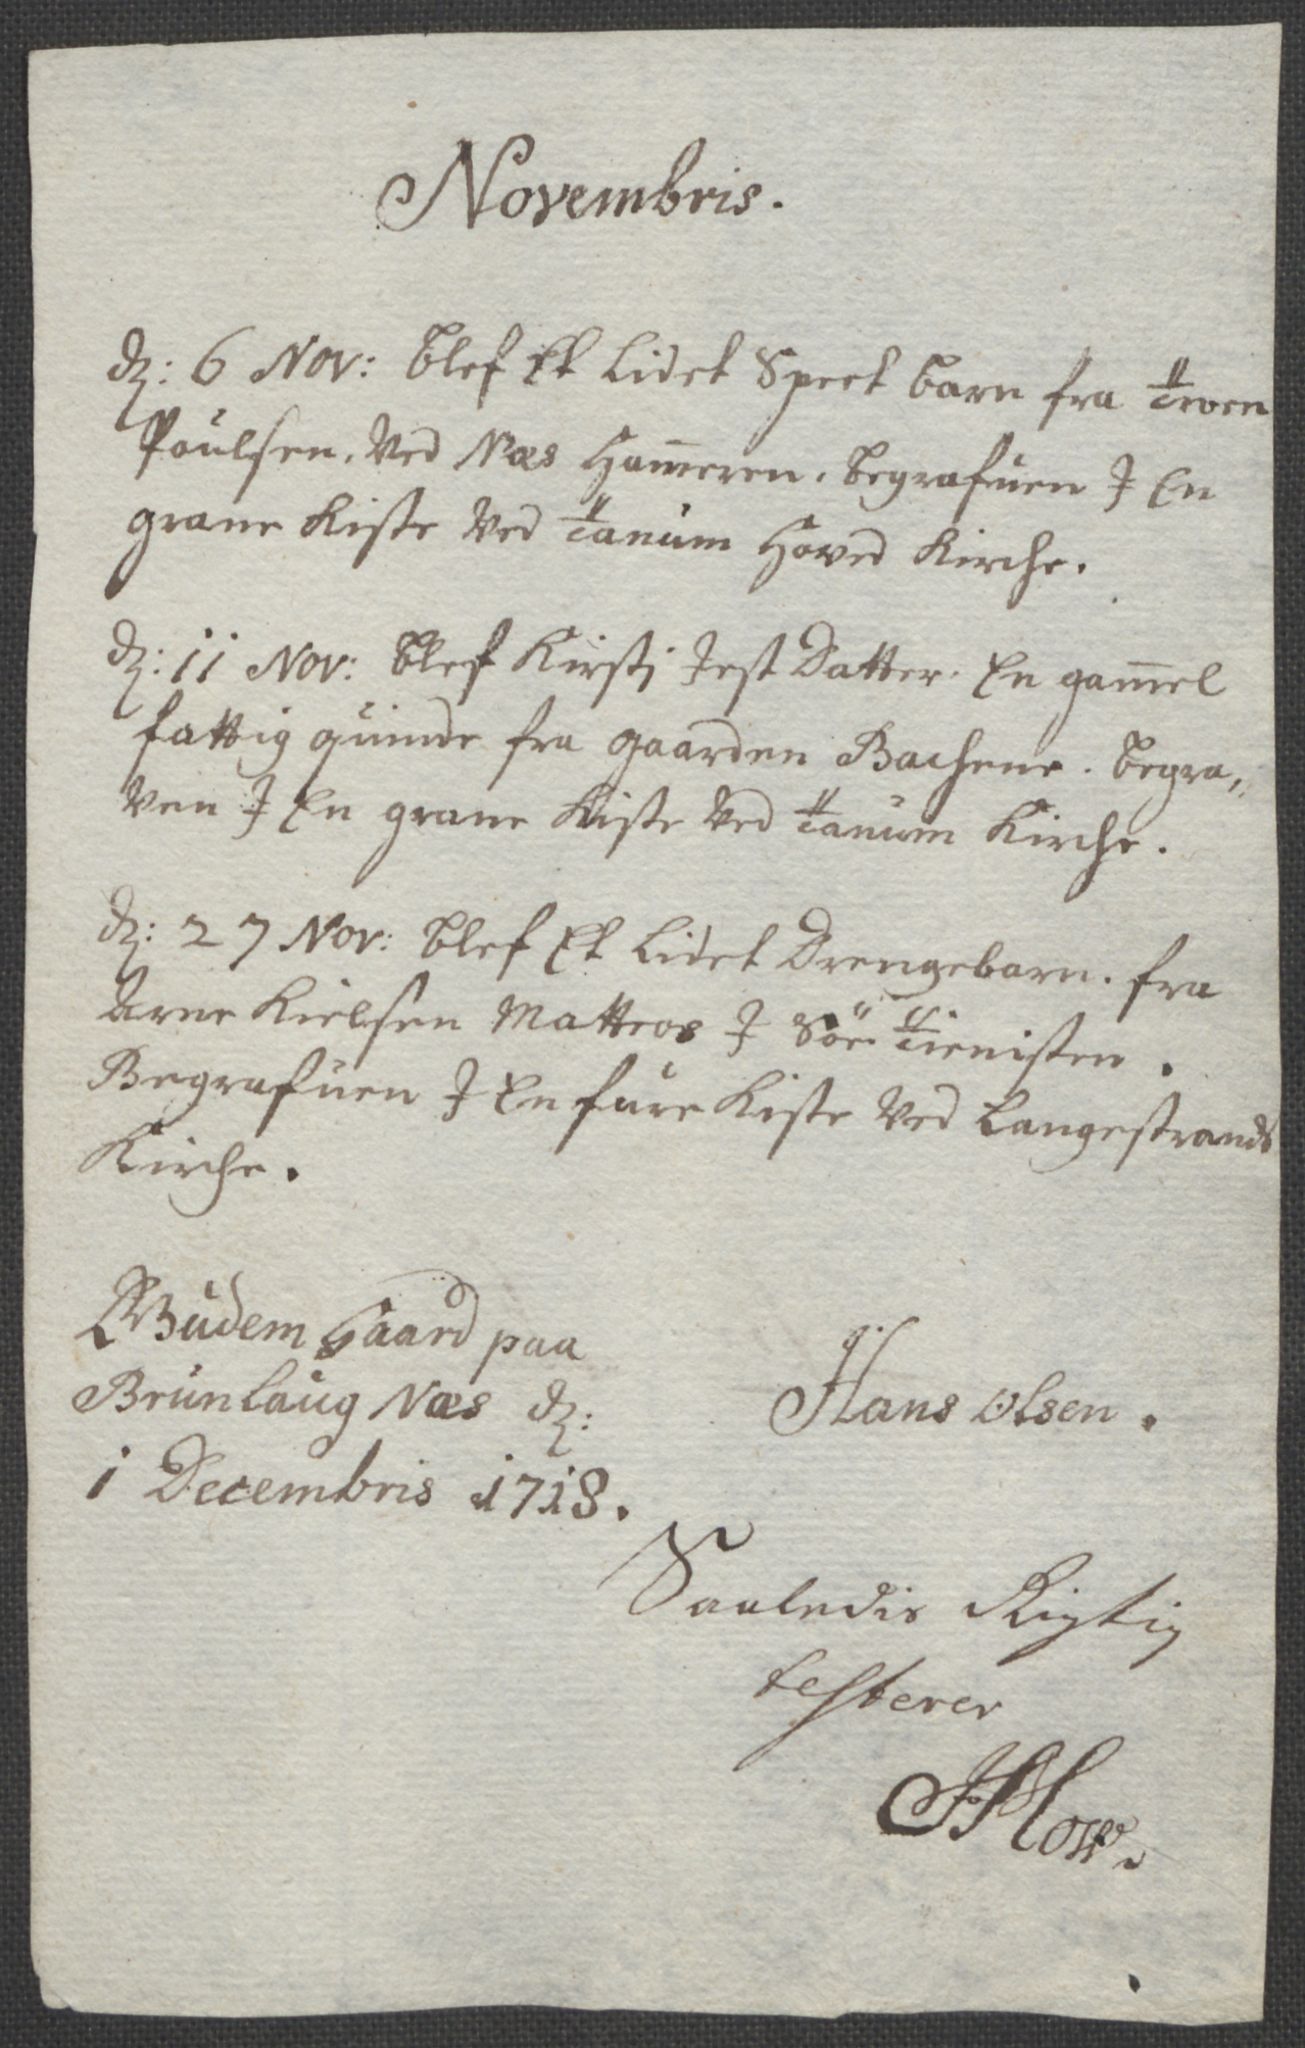 Novembris.
dz: 6 Nov: blef Et Lidet Speet barn fra Tiven
Poulsen. Ved Næs Hameren. begrafuen I En
grane Kiste Ved Tanum Hoved Kirche.
dz: 11 Nov: blef Kirsti Jest Datter. En gamel
fattig quinde fra gaarden Bachene. begra„
ven I En grane Kiste Ved Tanum Kirche.
dz: 27 Nov: blef Et Lidet Drengebarn. fra
Arne Kielsen Mattros I Sör Tienisten.
Begrafuen I En fure Kiste Ved Langestrands
Kirche.
Budem Gaard paa
Brunlaug Næs dz:
1 Decembris 1718.
Hans Olsen.
Saaledis Rigtig
testerer
How.